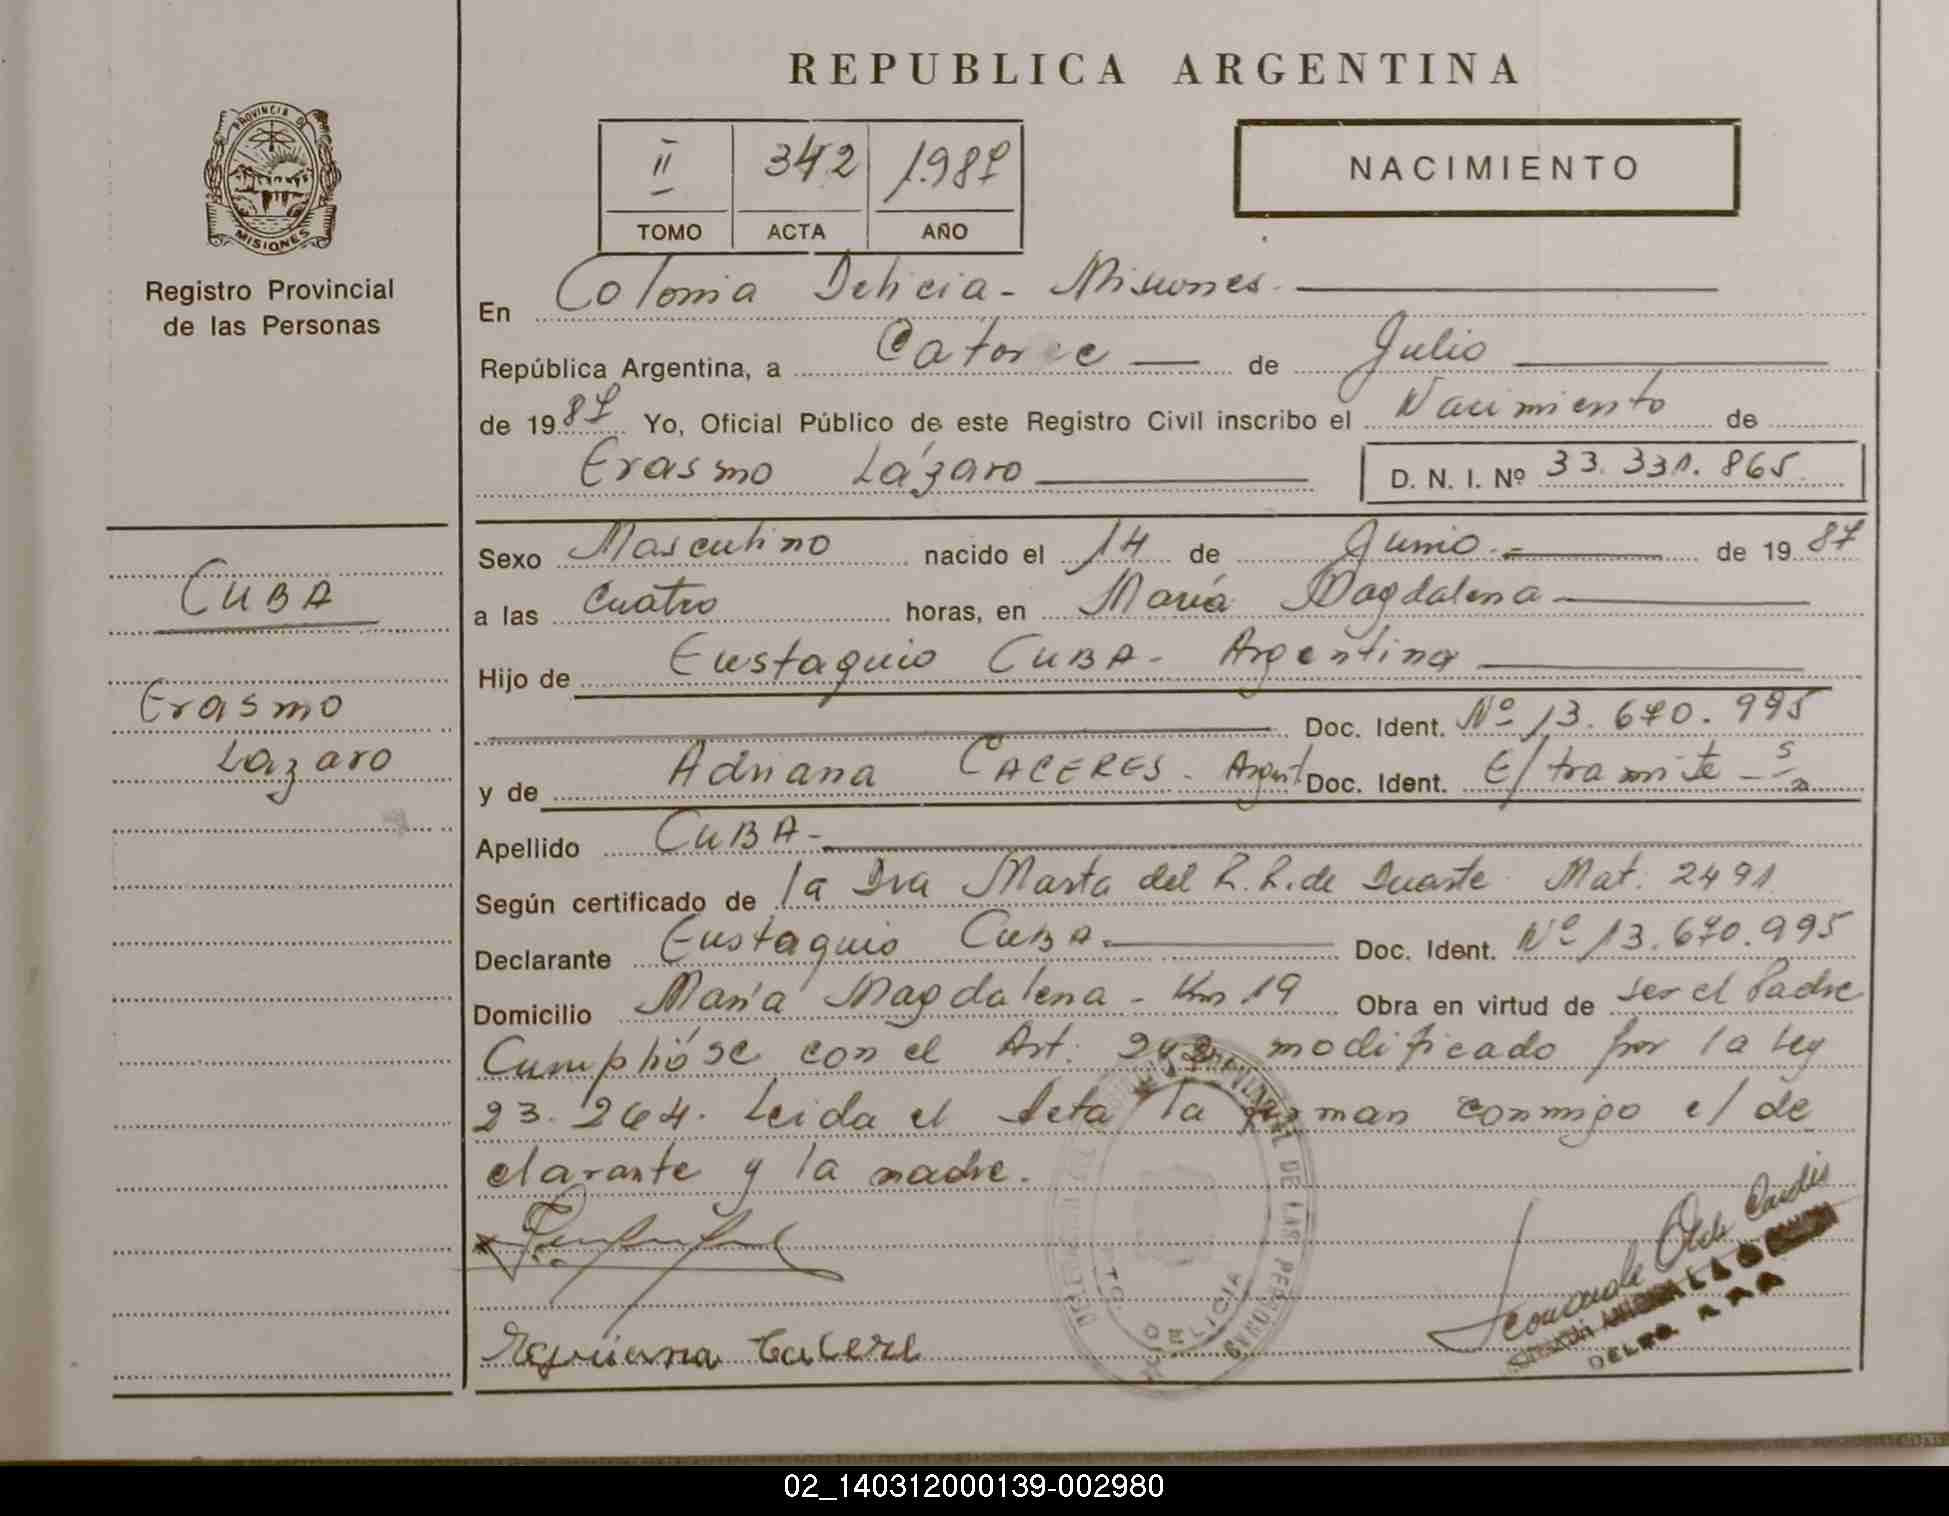 REPUBLICA ARGENTINA
PROVINCIA DE
MISIONES
Registro Provincial
de las Personas
II 342 1.987
TOMO ACTA AÑO
NACIMIENTO
En Colonia Delicia - Misiones.
República Argentina, a Catorce de Julio
de 1987 Yo, Oficial Público de este Registro Civil inscribo el Nacimiento de
Erasmo Lázaro D. N. I. Nº 33.331.865
CUBA
Erasmo
Lazaro
Sexo Masculino nacido el 14 de Junio.= de 1987
a las Cuatro horas, en María Magdalena
Hijo de Eustaquio CUBA - Argentina
Doc. Ident. Nº 13.670.995
y de Adriana CACERES - Argent Doc. Ident. E/tramite
Apellido CUBA-
Según certificado de la Dra Marta del R.R. de Duarte Mat. 2491
Declarante Eustaquio CUBA. Doc. Ident. Nº 13.670.995
Domicilio María Magdalena - Km 19 Obra en virtud de ser el Padre
Cumplióse con el Art. modificado por la ley
23.264. Leida el Acta la firman conmigo el de
clarante y la madre.
DELICIA
DE LAS PERSONAS
02_140312000139-002980